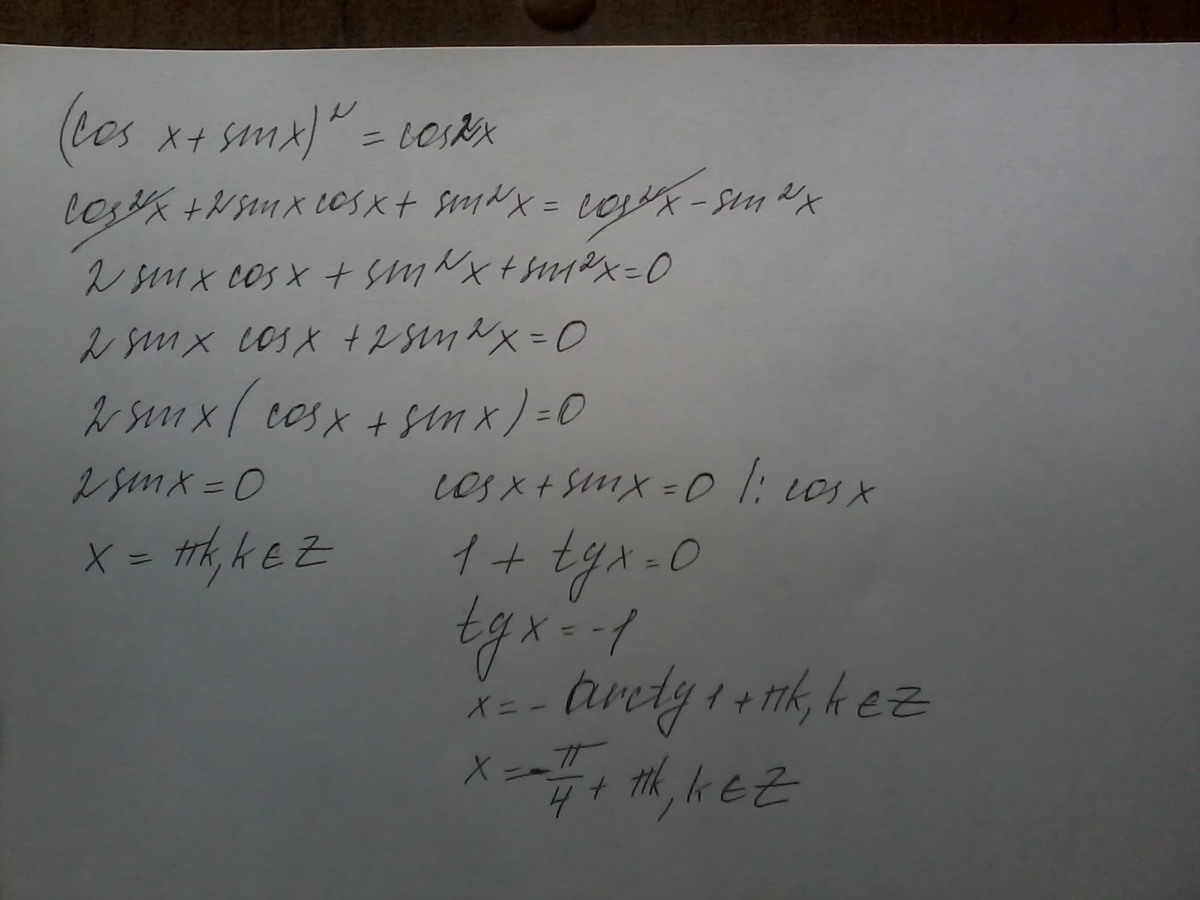 (cos x + sin x)² = cos2x
cos²x + 2 sin x cos x + sin²x = cos²x - sin²x
2 sin x cos x + sin²x + sin²x = 0
2 sin x cos x + 2 sin²x = 0
2 sin x (cos x + sin x) = 0
2 sin x = 0 cos x + sin x = 0 |: cos x
x = πk, k ∈ Z 1 + tg x = 0
tg x = -1
x = - arctg 1 + πk, k ∈ Z
x = -π/4 + πk, k ∈ Z